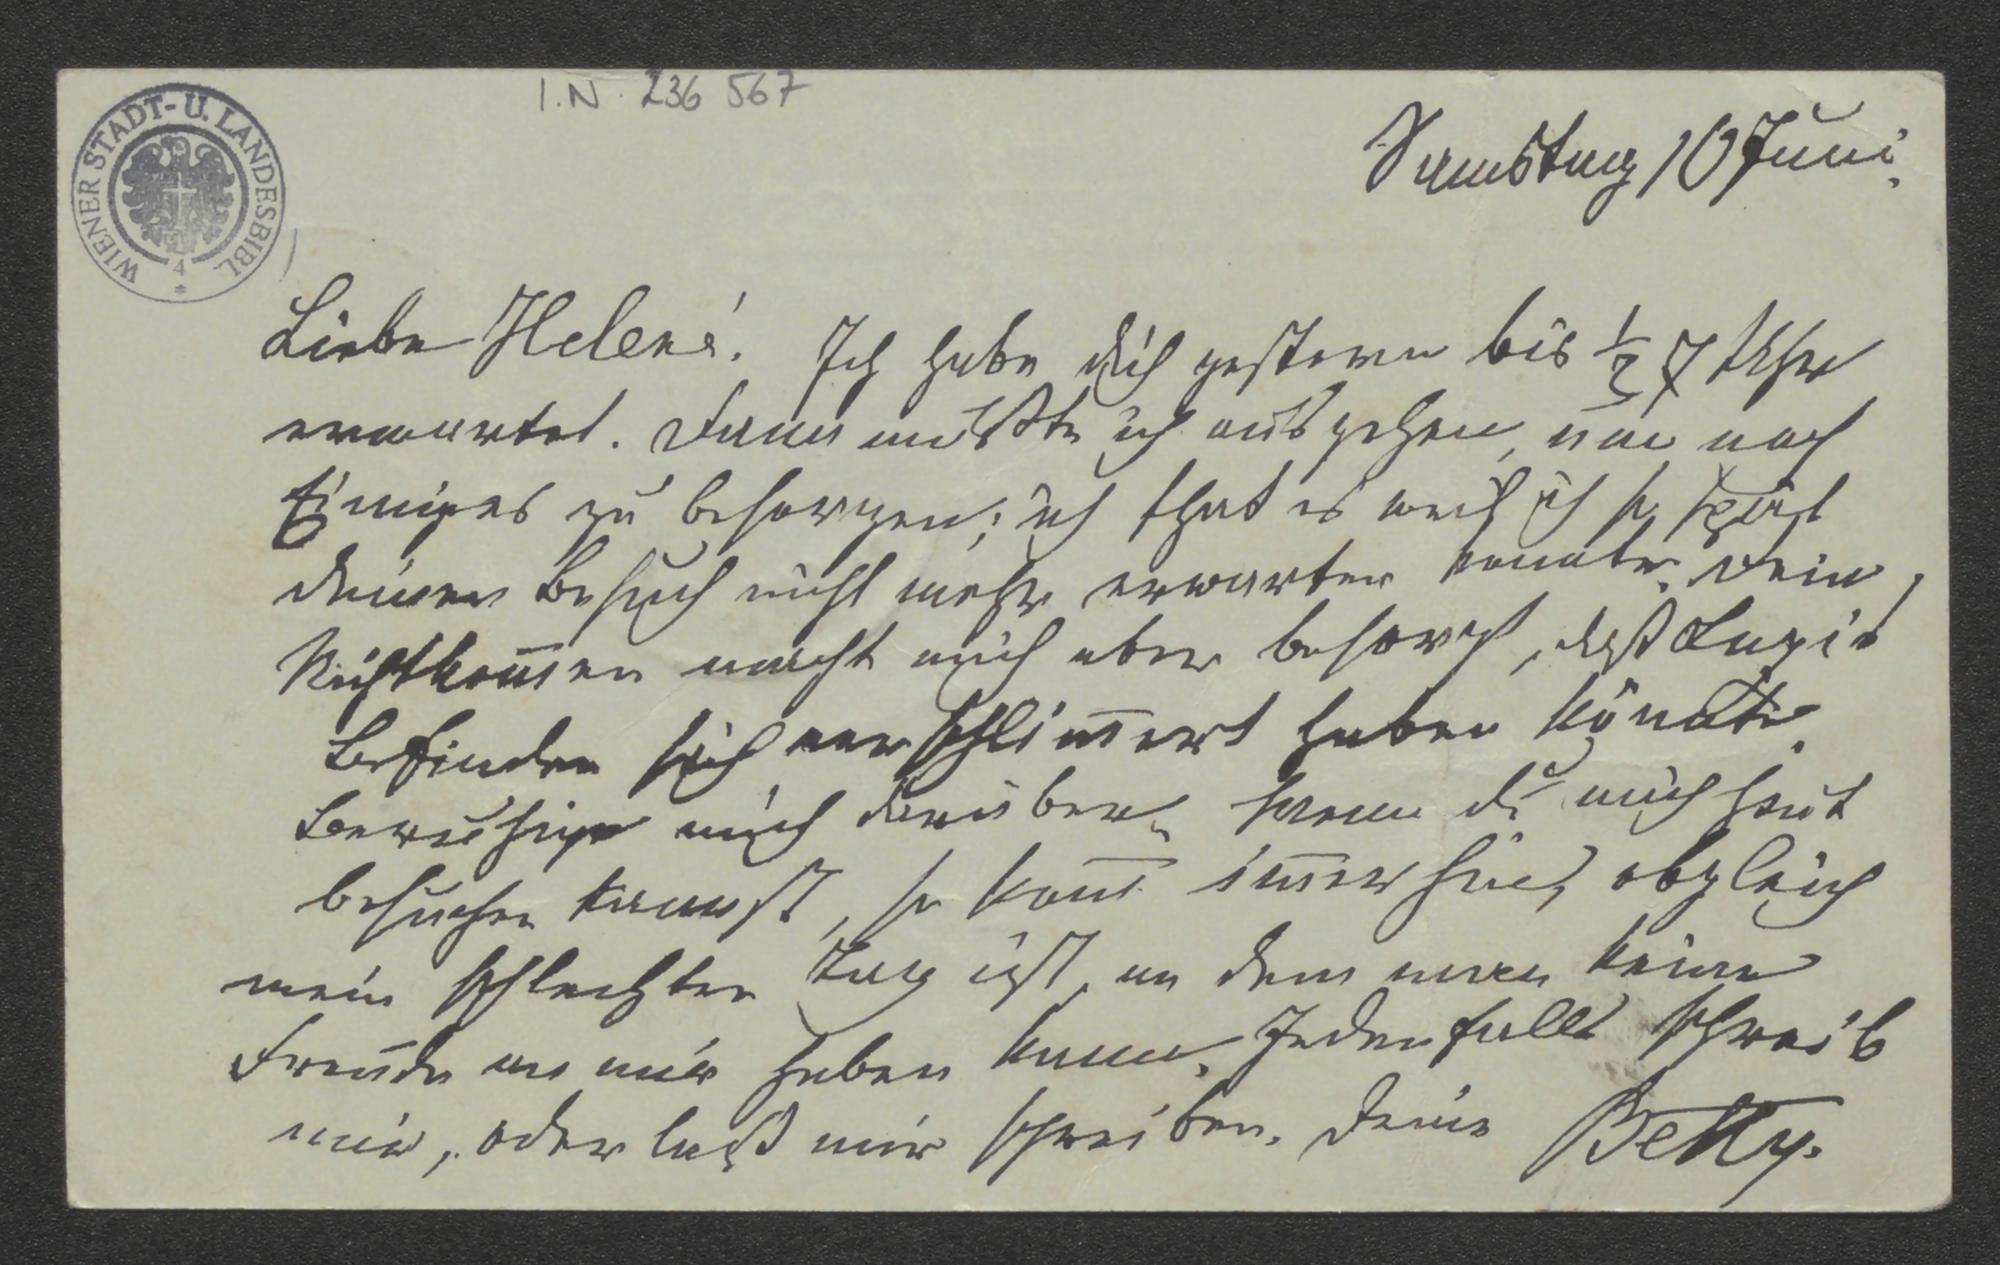 I.N. 236 567
WIENER STADT- U. LANDESBIBL.
4
Samstag 10 Juni.
Liebe Helene! Ich habe dich gestern bis ½ 7 Uhr
erwartet. Dann mußte ich ausgehen, um noch
Einiges zu besorgen; ich that es weil ich so spät
deinen Besuch nicht mehr erwarten konnte. Dein
Nichtkom̅en macht mich aber besorgt, daß
Befinden sich verschlim̅ert haben könnte.
Beruhige mich darüber. Wenn du mich heut
besuchen kannst, so kom̅ im̅erhin, obgleich
mein schlechter Tag ist, an dem man keine
Freude an mir haben kann. Jedenfalls schreib
mir, oder laß mir schreiben. Deine Betty.